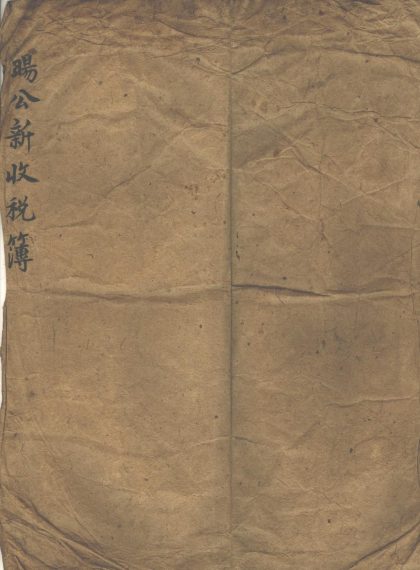 賜公新收税簿